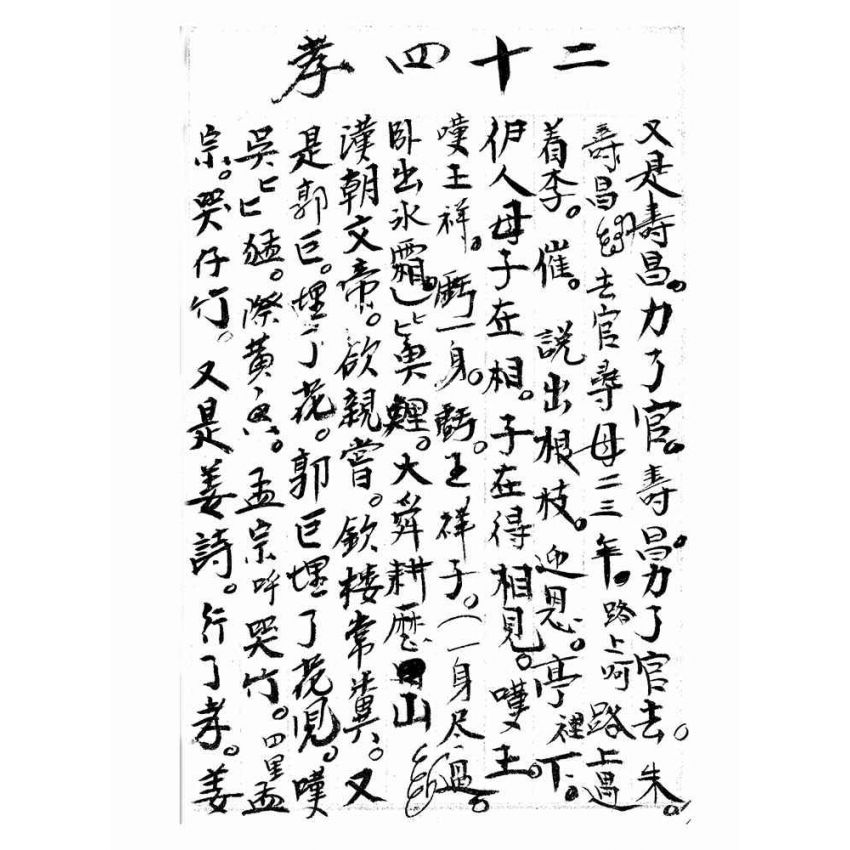 二十四孝
又是壽昌。力了官。壽昌。力了官去。朱。
壽昌去官尋母二三年。路上呵路上遇
着李。催。説出根枝。迎恩。亭裡下。
伊人母子在相。子在得相見。嘆王。
嘆王祥。虧一身。虧。王祥子。(一身尽過。
卧出氷霜。鯉。大舜耕歷山
漢朝文帝。欲親嘗。欽樓常糞。又
是郭巨。埋了花。郭巨埋了花児。嘆
吳猛。黃。孟宗呼哭竹。四里孟
宗。哭仔竹。又是姜詩。行了孝。姜